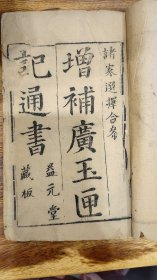 諸家選擇合叅
增補廣玉匣
記通書
益元堂
藏板